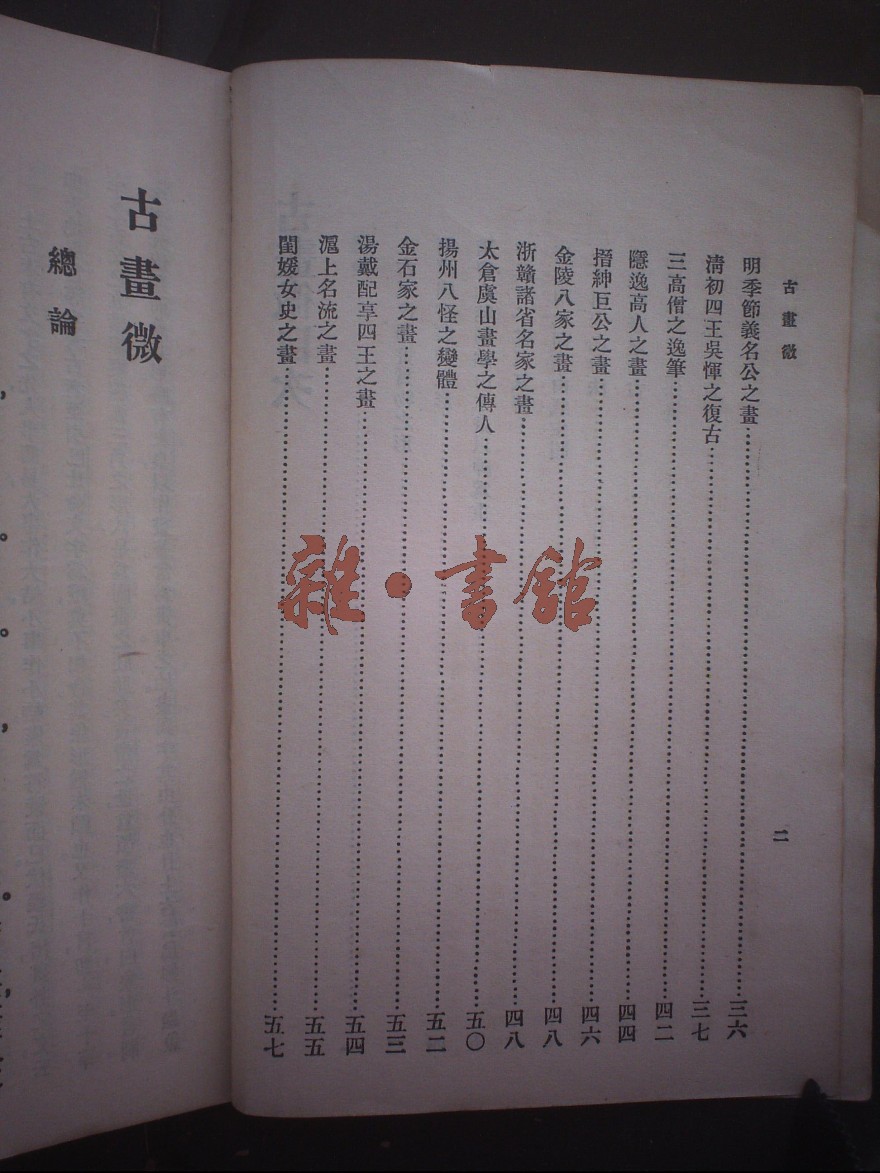 古畫微
二
明季節義名公之畫……三六
清初四王吳惲之復古……三七
三高僧之逸筆……四二
隱逸高人之畫……四四
搢紳巨公之畫……四六
金陵八家之畫……四八
浙贛諸省名家之畫……四八
太倉虞山畫學之傳人……五〇
揚州八怪之變體……五二
金石家之畫……五三
湯戴配享四王之畫……五四
滬上名流之畫……五五
閨媛女史之畫……五七
古畫微
總論
雜·書館